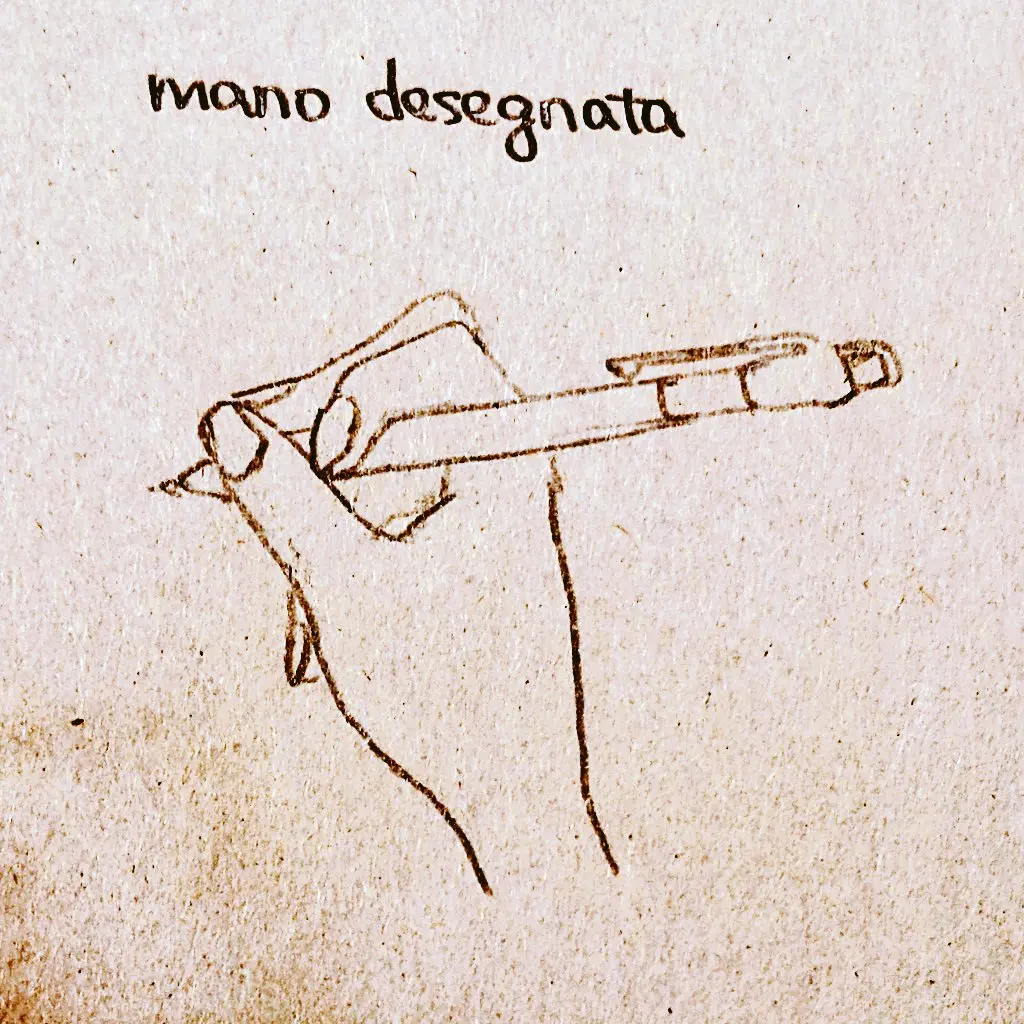 mano desegnata